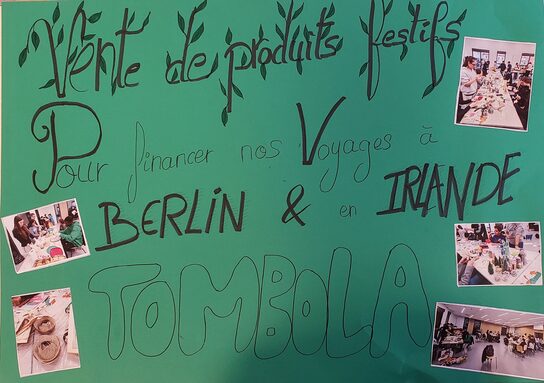 Vente de produits festifs
Pour financer nos Voyages à
BERLIN & en IRLANDE
TOMBOLA